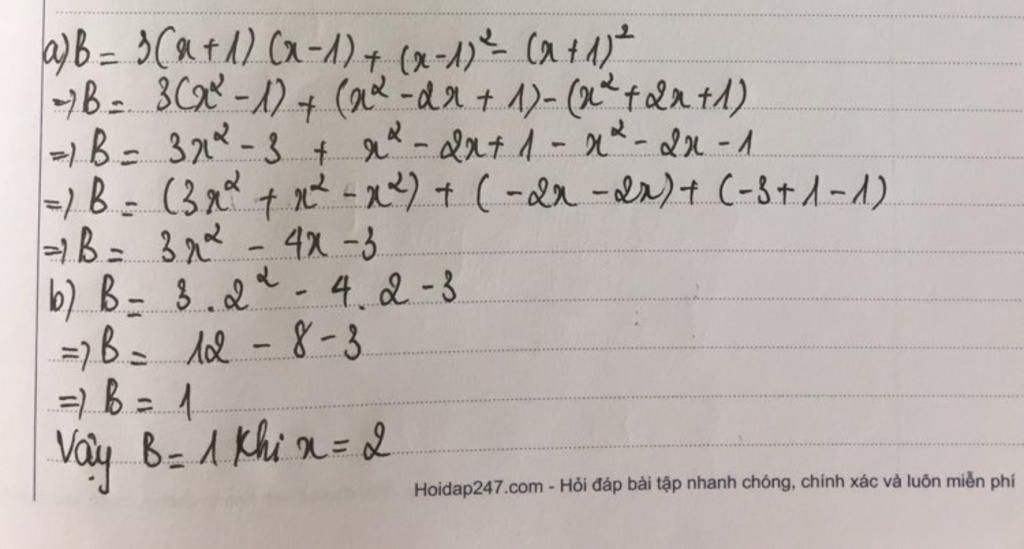 a) B = 3(x+1)(x-1) + (x-1)² - (x+1)²
=> B = 3(x² - 1) + (x² - 2x + 1) - (x² + 2x + 1)
=> B = 3x² - 3 + x² - 2x + 1 - x² - 2x - 1
=> B = (3x² + x² - x²) + (-2x - 2x) + (-3 + 1 - 1)
=> B = 3x² - 4x - 3
b) B = 3 . 2² - 4 . 2 - 3
=> B = 12 - 8 - 3
=> B = 1
Vậy B = 1 khi x = 2
Hoidap247.com - Hỏi đáp bài tập nhanh chóng, chính xác và luôn miễn phí